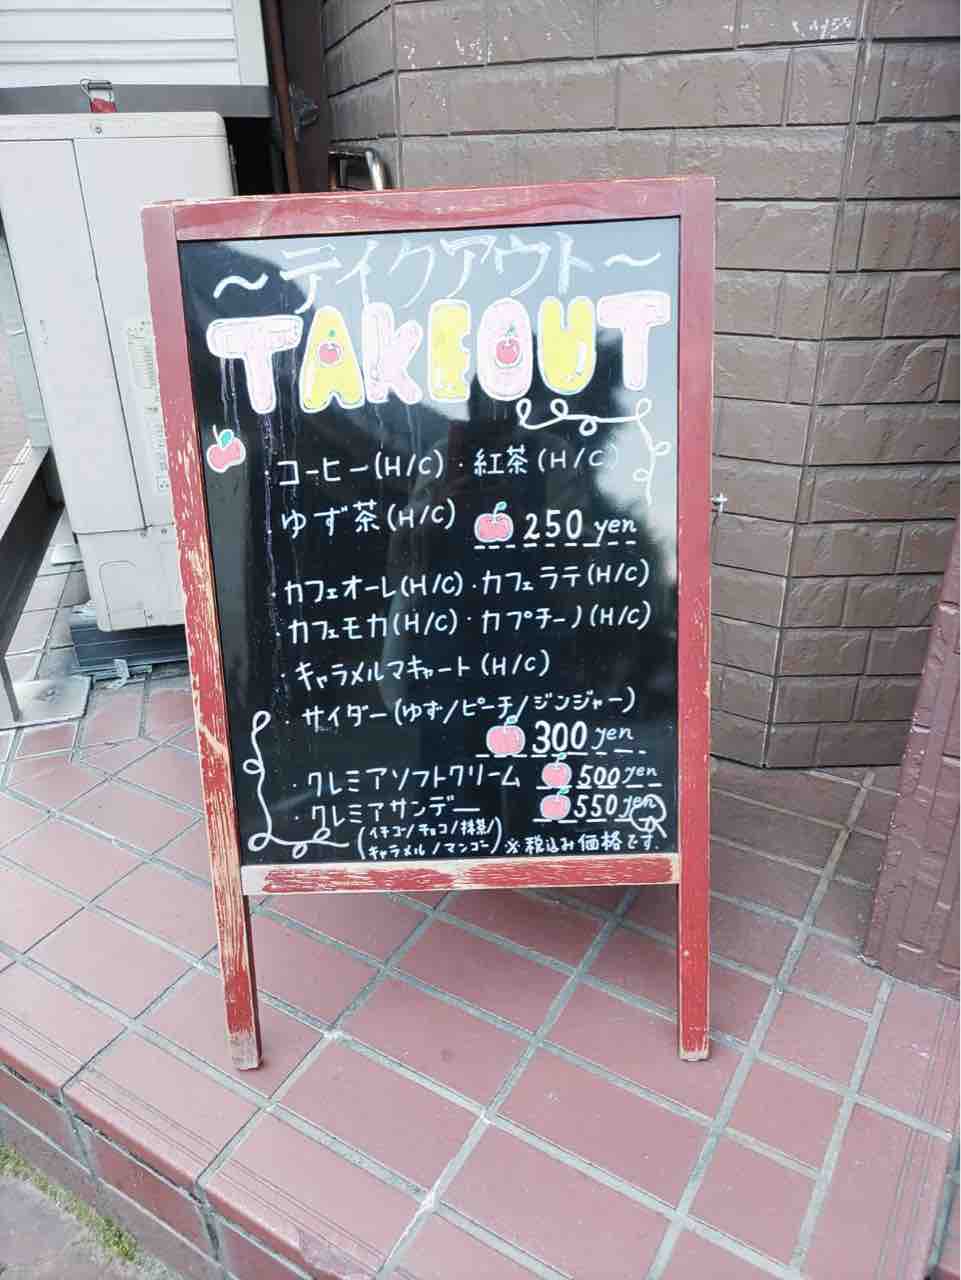 ～テイクアウト～
TAKEOUT
・コーヒー(H/C)・紅茶(H/C)
ゆず茶(H/C) 250 yen
・カフェオーレ(H/C)・カフェラテ(H/C)
・カフェモカ(H/C)・カプチーノ(H/C)
・キャラメルマキャート(H/C)
・サイダー(ゆず/ピーチ/ジンジャー)
300 yen
・クレミアソフトクリーム 500yen
・クレミアサンデー 550yen
(イチゴ/チョコ/抹茶/
キャラメル/マンゴー) ※税込み価格です.